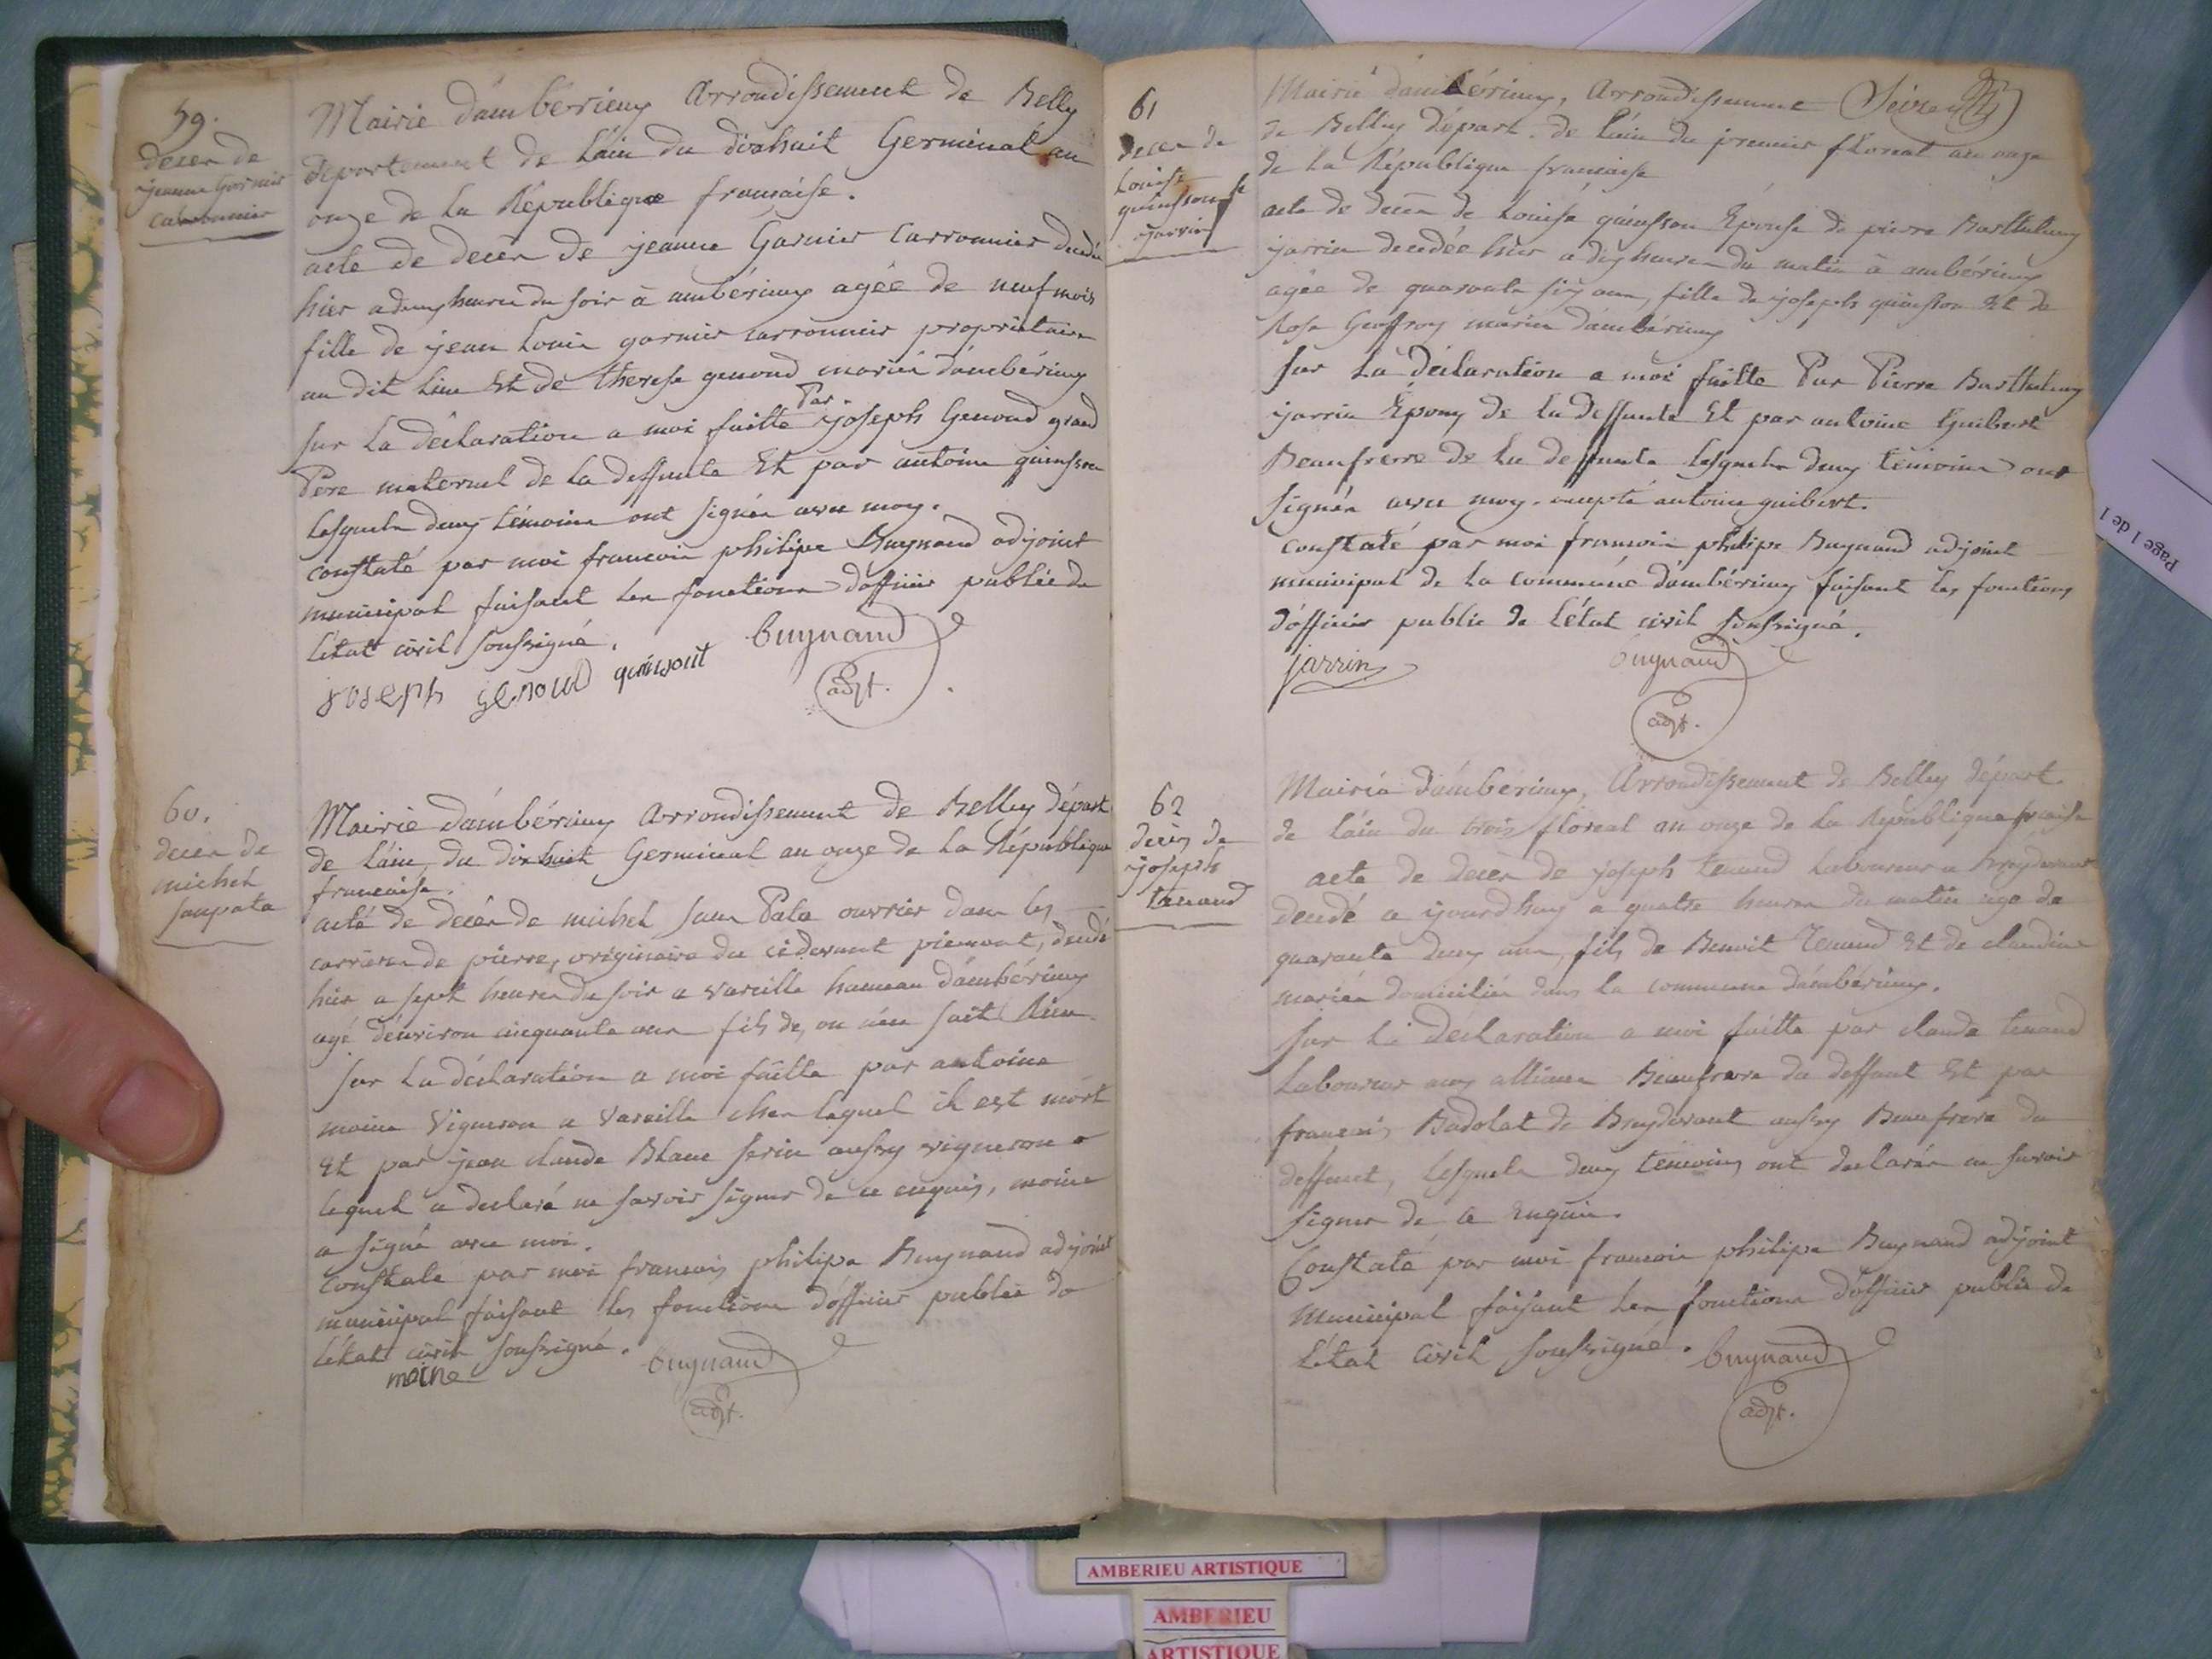 59.
decèn de
jeanne Garnier
Carronnier
Mairie d'ambérieux Arrondissement de Belley
département de l'ain du dixhuit Germinal an
onze de la République francaise.
acte de decèn de jeanne Garnier Carronnier decedée
hier a deux heures du soir à ambérieux agée de neuf mois
fille de jean Louis garnier carronnier proprietaire
au dit lieu Et de therese genoud mariés d'ambérieux
sur la déclaration a moi faitte Par joseph Genoud grand
Père maternel de la deffunte Et par antoine quinson
lesquels deux témoins ont signés avec moy.
constaté par moi francois philipe Buynand adjoint
municipal faisant les fonctions d'officier publie de
l'état civil soussigné.
joseph genoud quinsont buynand
adjt.
60.
decèn de
michel
sanpata
Mairie d'ambérieux Arrondissement de Belley départ
de l'ain, du dixhuit Germinal an onze de la République
francaise.
acte de decèn de michel san Pata ouvrier dans les
carrieres de pierre, originaire du cidevant piemont, decedé
hier a sept heures du soir a vareille hameau d'ambérieux
agé d'environ cinquante ans fils de, on n'en sait Rien
sur la déclaration a moi faitte par antoine
moine Vigneron a Vareille chez lequel il est mort
Et par jean claude Blanc serin aussy vigneron
lequel a declaré ne savoir signer de ce enquis, moine
a signé avec moi.
constaté par moi francois philipe Buynand adjoint
municipal faisant les fonctions d'officier publie de
l'état civil soussigné.
moine buynand
adjt.
61
decen de
Louise
quinson fe
jarrin
Mairie d'ambérieux, Arrondissement Seize
de Belley départ. de l'ain du premier floreal an onze
de la République francaise
acte de decèn de Louise quinsson Épouse de pierre Barthelemy
jarrin decedée hier a dix heures du matin à ambérieux
agée de quarante six ans, fille de joseph quinsson Et de
Rose Geoffroy mariés d'ambérieux
sur la déclaration a moi faitte Par Pierre Barthelemy
jarrin Époux de la deffunte Et par antoine Guibert
Beaufrerre de la deffunte lesquels deux témoins ont
signés avec moy. excepté antoine guibert.
constaté par moi francois philipe Buynand adjoint
municipal de la commune d'ambérieux faisant les fonctions
d'officier public de l'état civil soussigné.
jarrin buynand
adjt.
62
decès de
joseph
tenand
Mairie d'ambérieux, Arrondissement de Belley départ.
de l'ain du trois floreal an onze de la République fcaise
acte de decèn de joseph tenand Laboureur a Breydevant
decedé a jourdhuy a quatre heures du matin agé de
quarante deux ans, fils de Benoit Tenand Et de claudine
mariés domiciliés dans la commune d'ambérieux.
sur la déclaration a moi faitte par claude tenand
Laboureur aux allimes Beaufrere du deffunt Et par
francois Badolat de Breydevant aussy Beaufrere du
deffunt, lesquels deux temoins ont declarés ne savoir
signer de ce Enquis.
Constaté par moi francois philipe Buynand adjoint
Municipal faisant les fonctions d'officier public de
l'état civil soussigné. buynand
adjt.
Page 1 de 1
AMBERIEU ARTISTIQUE
AMBERIEU
ARTISTIQUE